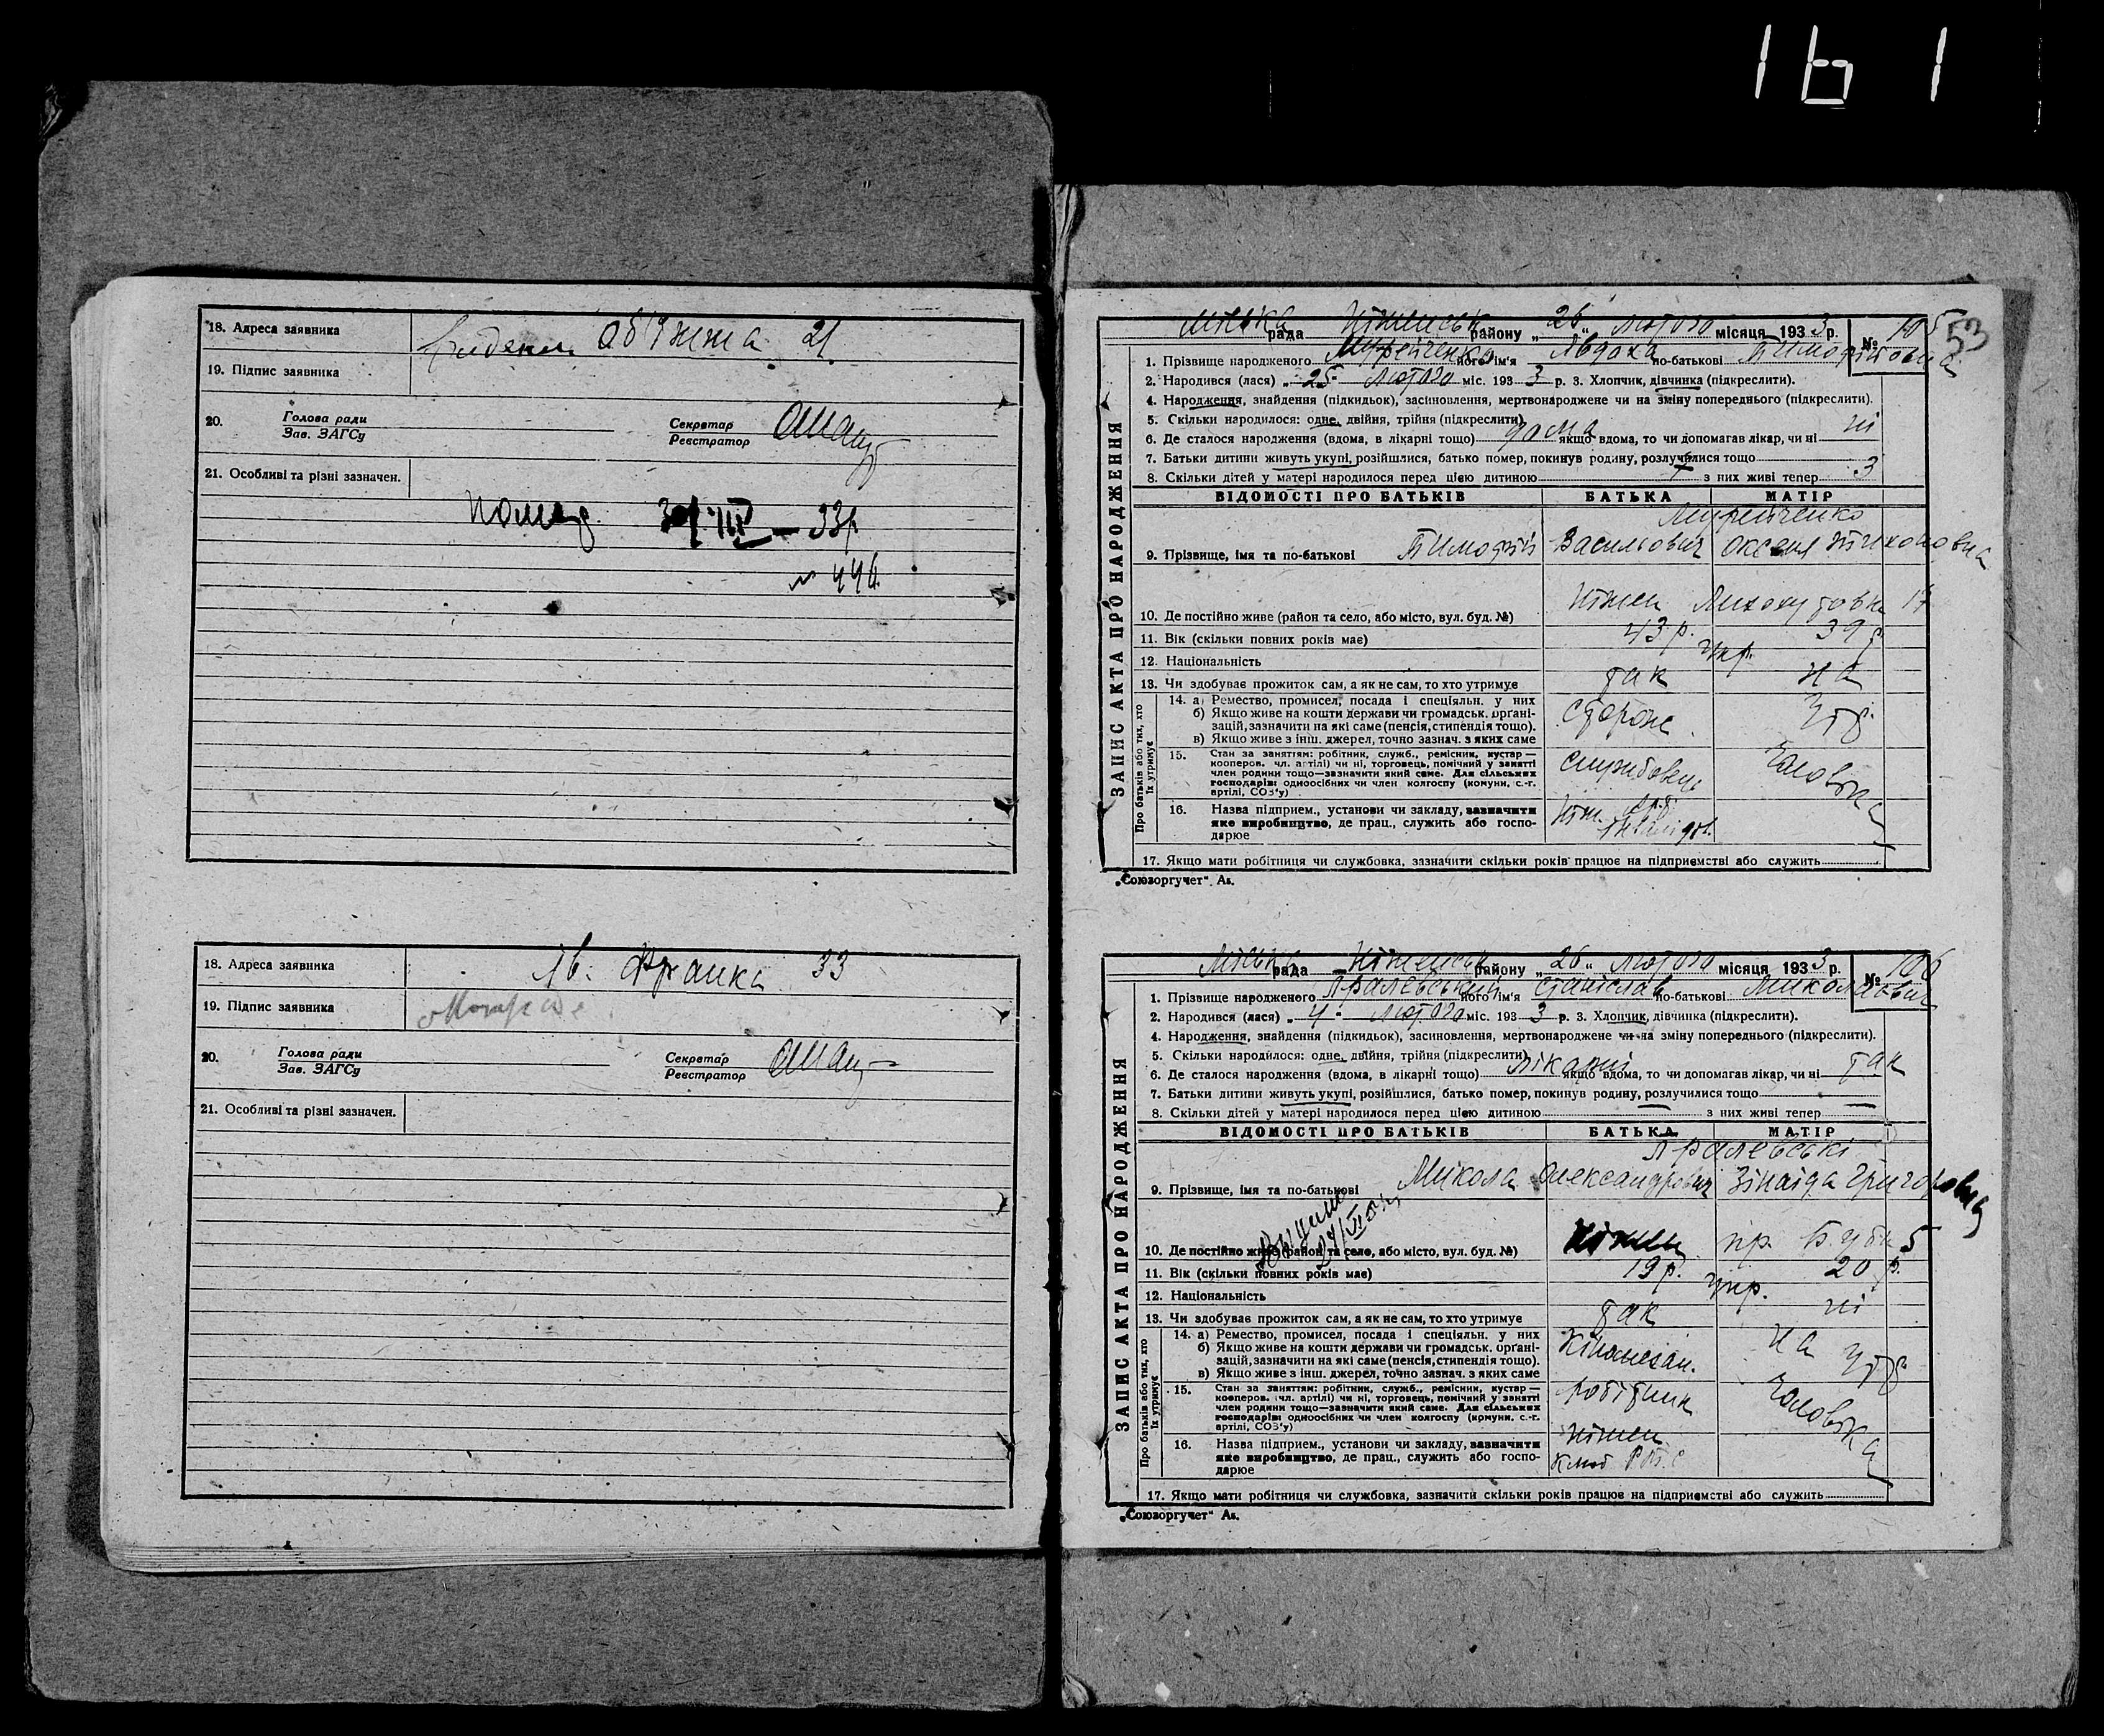 161
18. Адреса заявника Об'їжжа 21
19. Підпис заявника
20. Голова ради
Зав. ЗАГСу
Секретар
Реєстратор
21. Особливі та різні зазначен.
33р
№ 446
18. Адреса заявника Ів. Франка 33
19. Підпис заявника
20. Голова ради
Зав. ЗАГСу
Секретар
Реєстратор
21. Особливі та різні зазначен.
53
ЗАПИС АКТА ПРО НАРОДЖЕННЯ
Міська рада Ніженськ району „26“ лютого місяця 1933 р. № 105
1. Прізвище народженого його ім'я Явдоха по-батькові Тимофіївна
2. Народився (лася) „25“ Лютого міс. 1933 р. 3. Хлопчик, дівчинка (підкреслити).
4. Народження, знайдення (підкидьок), засиновлення, мертвонароджене чи на зміну попереднього (підкреслити).
5. Скільки народилося: одне, двійня, трійня (підкреслити)
6. Де сталося народження (вдома, в лікарні тощо) дома якщо вдома, то чи допомагав лікар, чи ні ні
7. Батьки дитини живуть укупі, розійшлися, батько помер, покинув родину, розлучилися тощо
8. Скільки дітей у матері народилося перед цією дитиною з них живі тепер 3
ВІДОМОСТІ ПРО БАТЬКІВ БАТЬКА МАТІР
9. Прізвище, імя та по-батькові Тимофій Васильович Оксеня Тихоновна
10. Де постійно живе (район та село, або місто, вул. буд. №) Ніжен 17
11. Вік (скільки повних років має) 43 р. 39 р
12. Національність Укр.
13. Чи здобуває прожиток сам, а як не сам, то хто утримує так на
Про батьків або тих, хто їх утримує
14. а) Ремество, промисел, посада і спеціяльн. у них Сторож утр.
б) Якщо живе на кошти держави чи громадськ. органі-
зацій, зазначити на які саме (пенсія, стипендія тощо).
в) Якщо живе з інш. джерел, точно зазнач. з яких саме
15. Стан за заняттям: робітник, служб., ремісник, кустар — Службовець чоловіка
кооперов. чл. артілі) чи ні, торговець, помічний у занятті
член родини тощо—зазначити який саме. Для сільських
господарів: одноосібних чи член колгоспу (комуни, с.-г.
артілі, СОЗ'у)
16. Назва підприєм., установи чи закладу, зазначити Ніж.
яке виробництво, де прац., служить або госпо-
дарює
17. Якщо мати робітниця чи службовка, зазначити скільки років працює на підприємстві або служить
„Союзоргучет“ Ав.
ЗАПИС АКТА ПРО НАРОДЖЕННЯ
Міська рада Ніженськ району „26“ лютого місяця 1933 р. № 106
1. Прізвище народженого його ім'я Станіслав по-батькові Миколайович
2. Народився (лася) „4“ Лютого міс. 1933 р. 3. Хлопчик, дівчинка (підкреслити).
4. Народження, знайдення (підкидьок), засиновлення, мертвонароджене чи на зміну попереднього (підкреслити).
5. Скільки народилося: одне, двійня, трійня (підкреслити)
6. Де сталося народження (вдома, в лікарні тощо) лікарні якщо вдома, то чи допомагав лікар, чи ні так
7. Батьки дитини живуть укупі, розійшлися, батько помер, покинув родину, розлучилися тощо —
8. Скільки дітей у матері народилося перед цією дитиною — з них живі тепер —
ВІДОМОСТІ ПРО БАТЬКІВ БАТЬКА МАТІР
9. Прізвище, імя та по-батькові Микола Олександрович Зінаїда Григоровна
10. Де постійно живе (район та село, або місто, вул. буд. №) Ніжен пр. 5
11. Вік (скільки повних років має) 19 р. 20 р.
12. Національність Укр.
13. Чи здобуває прожиток сам, а як не сам, то хто утримує так ні
Про батьків або тих, хто їх утримує
14. а) Ремество, промисел, посада і спеціяльн. у них Кіномехан. на утр
б) Якщо живе на кошти держави чи громадськ. органі-
зацій, зазначити на які саме (пенсія, стипендія тощо).
в) Якщо живе з інш. джерел, точно зазнач. з яких саме
15. Стан за заняттям: робітник, служб., ремісник, кустар — робітник чоловіка
кооперов. чл. артілі) чи ні, торговець, помічний у занятті
член родини тощо—зазначити який саме. Для сільських
господарів: одноосібних чи член колгоспу (комуни, с.-г.
артілі, СОЗ'у)
16. Назва підприєм., установи чи закладу, зазначити Ніжен
яке виробництво, де прац., служить або госпо-
дарює
17. Якщо мати робітниця чи службовка, зазначити скільки років працює на підприємстві або служить
„Союзоргучет“ Ав.